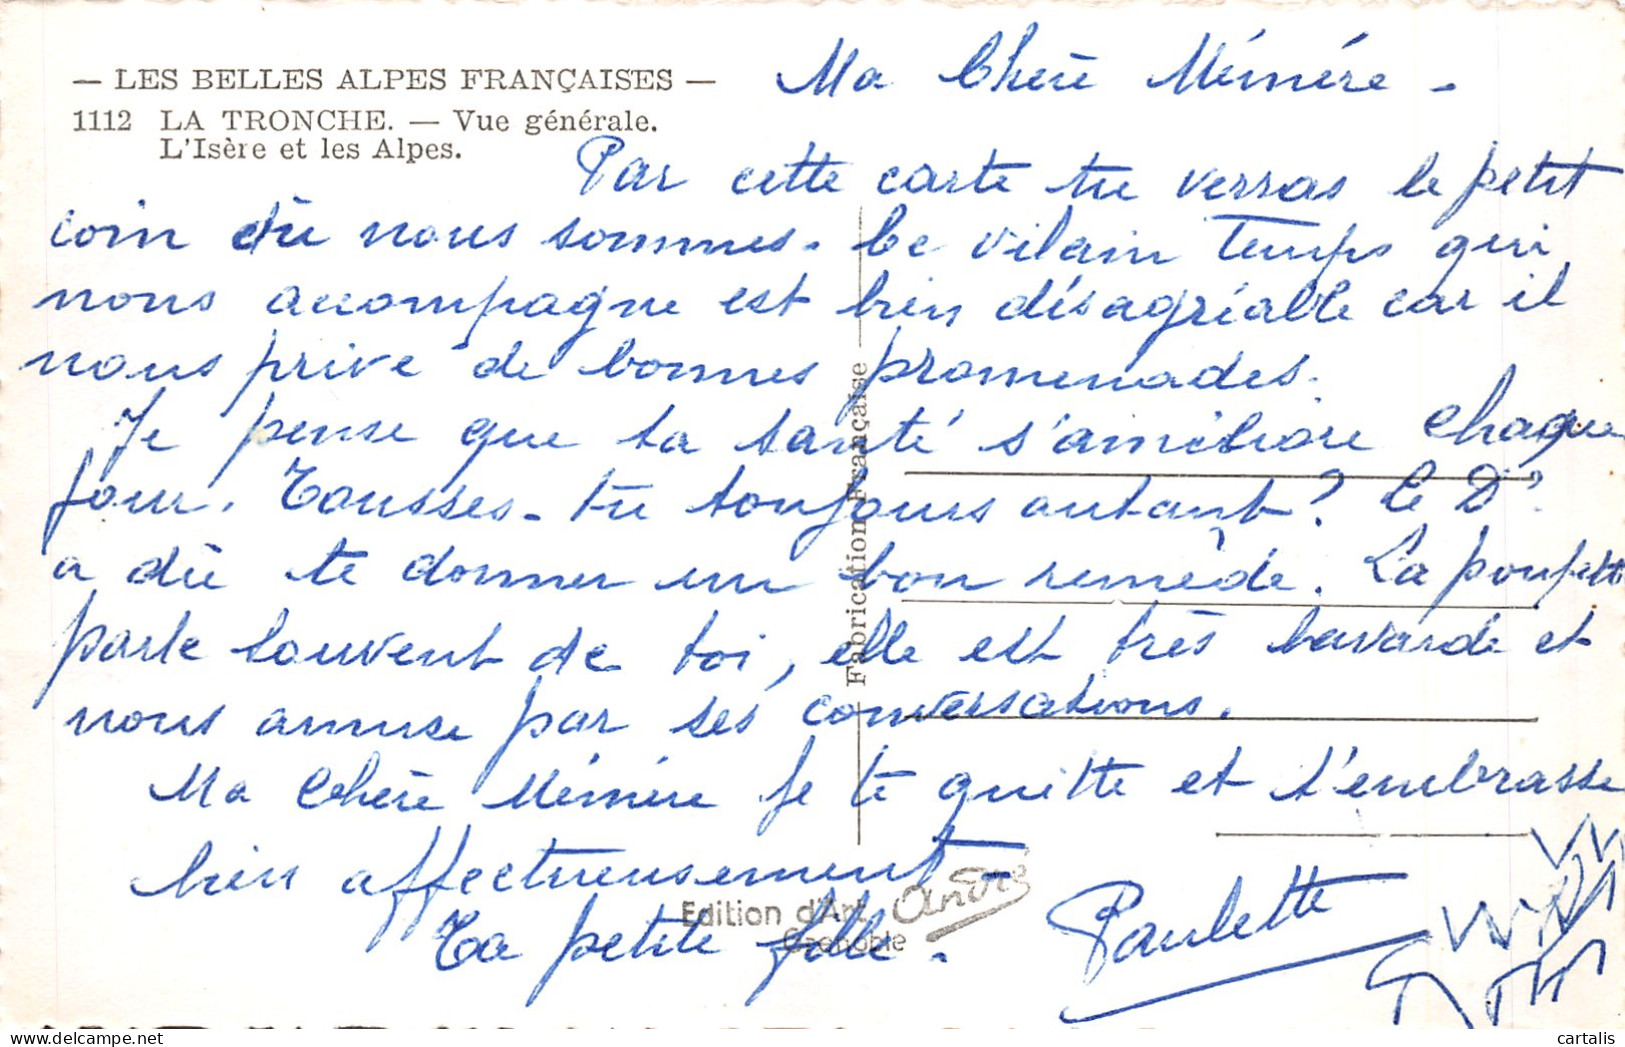 — LES BELLES ALPES FRANÇAISES —
1112 LA TRONCHE. — Vue générale.
L'Isère et les Alpes.
Ma Chère Mémère -
Par cette carte tu verras le petit
coin où nous sommes. Ce vilain Temps qui
nous accompagne est bien désagréable car il
nous prive de bonnes promenades.
Je pense que ta santé s'améliore chaque
jour. Tousses-tu toujours autant ? Le Dr
a dû te donner un bon remède. La poupette
parle souvent de toi, elle est très bavarde et
nous amuse par ses conversations.
Ma Chère Mémère je te quitte et t'embrasse
bien affectueusement -
Ta petite fille. Paulette
Fabrication Française
Edition d'Art André
Grenoble
cartalis